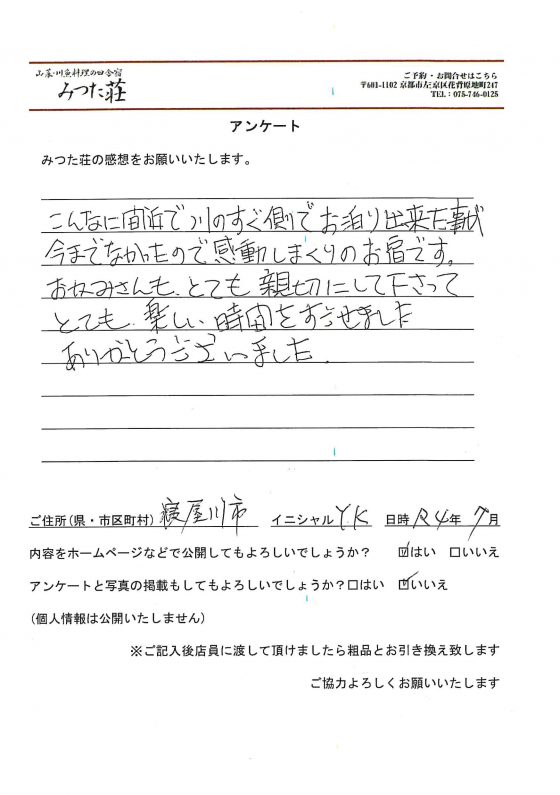 山菜・川魚料理の田舎宿
みつた荘
ご予約・お問合せはこちら
〒601-1102 京都市左京区花背原地町247
TEL：075-746-0125
アンケート
みつた荘の感想をお願いいたします。
こんなに間近で川のすぐ側でお泊り出来た事が
今までなかったもので感動しまくりのお宿です。
おかみさんも、とても親切にして下さって
とても、楽しい時間をすごせました
ありがとうございました.
ご住所(県・市区町村) 寝屋川市 イニシャル Y.K 日時 R4年 7月
内容をホームページなどで公開してもよろしいでしょうか？ ☑はい □いいえ
アンケートと写真の掲載もしてもよろしいでしょうか？□はい ☑いいえ
(個人情報は公開いたしません)
※ご記入後店員に渡して頂けましたら粗品とお引き換え致します
ご協力よろしくお願いいたします